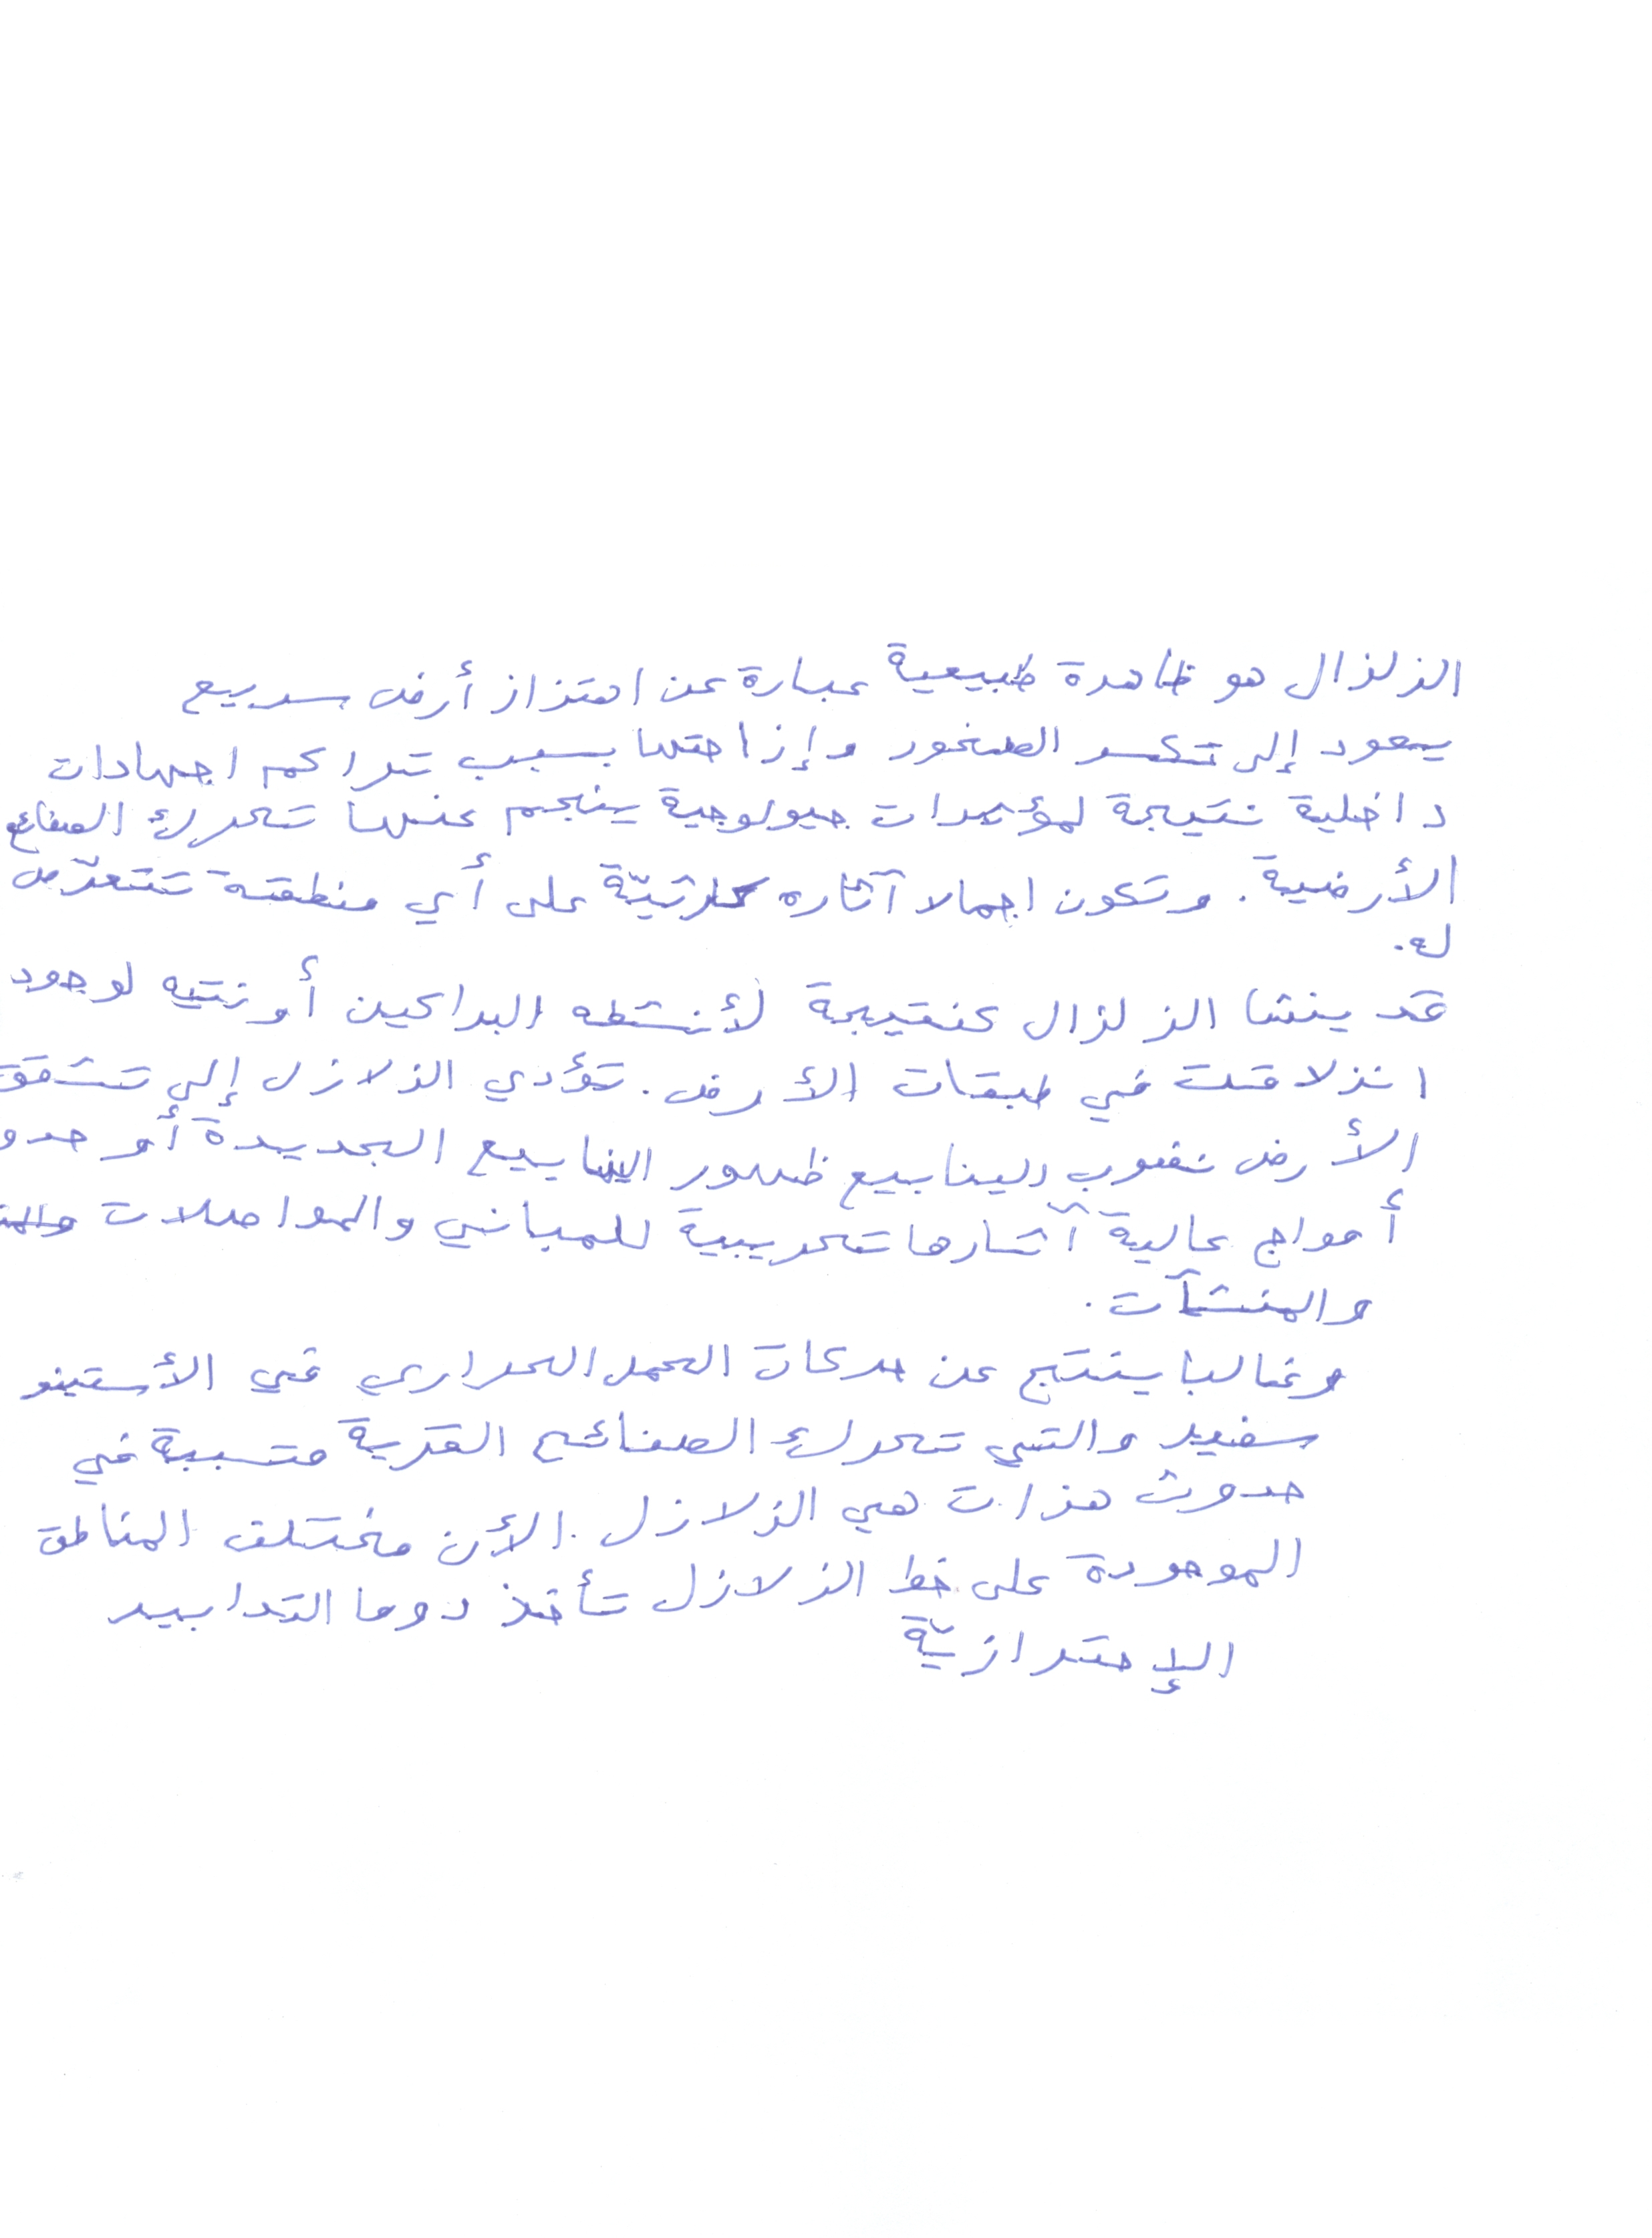 الزلزال هو ظاهدة طبيعية عبارة عن اهتزاز أرض سريع
يعود إلى تكسر الصخور وإزاحتها بسبب تراكم اجهادات
داخلية نتيجة لمؤثرات جيولوجية ينجم عنها تحرك الصفائح
الأرضية. وتكون اجمالا آثاره كارثيّة على أي منطقة تتعرّض
له.
قد ينشا الزلزال كنتيجة لأنشطه البراكين أو نتيه لوجود
انزلاقت في طبقات الأرض. تؤدي الزلازل إلى تشقق
الأرض نضوب الينابيع ظهور الينابيع الجديدة أو حدو
أمواج عالية آثارها تخريبية للمباني والمواصلات
والمنشآت.
وغالبا ينتج عن حركات الحمل الحراري في الأستينو
سفير والتي تحرك الصفائح القرية متسببة في
حدوث هزات هي الزلازل. الأن مختلف المناطق
الموجودة على خط الزلازل تأخذ دوما التدابير
الإحترازيّة